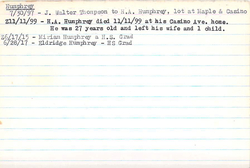 Humphrey
7/30/97 - J. Walter Thompson to H.A. Humphrey, lot at Maple & Casino
E11/11/99 - H.A. Humphrey died 11/11/99 at his Casino Ave. home.
He was 27 years old and left his wife and 1 child.
E6/17/15 - Miriam Humphrey a H.S. Grad
6/28/17 - Eldridge Humphrey - HS Grad